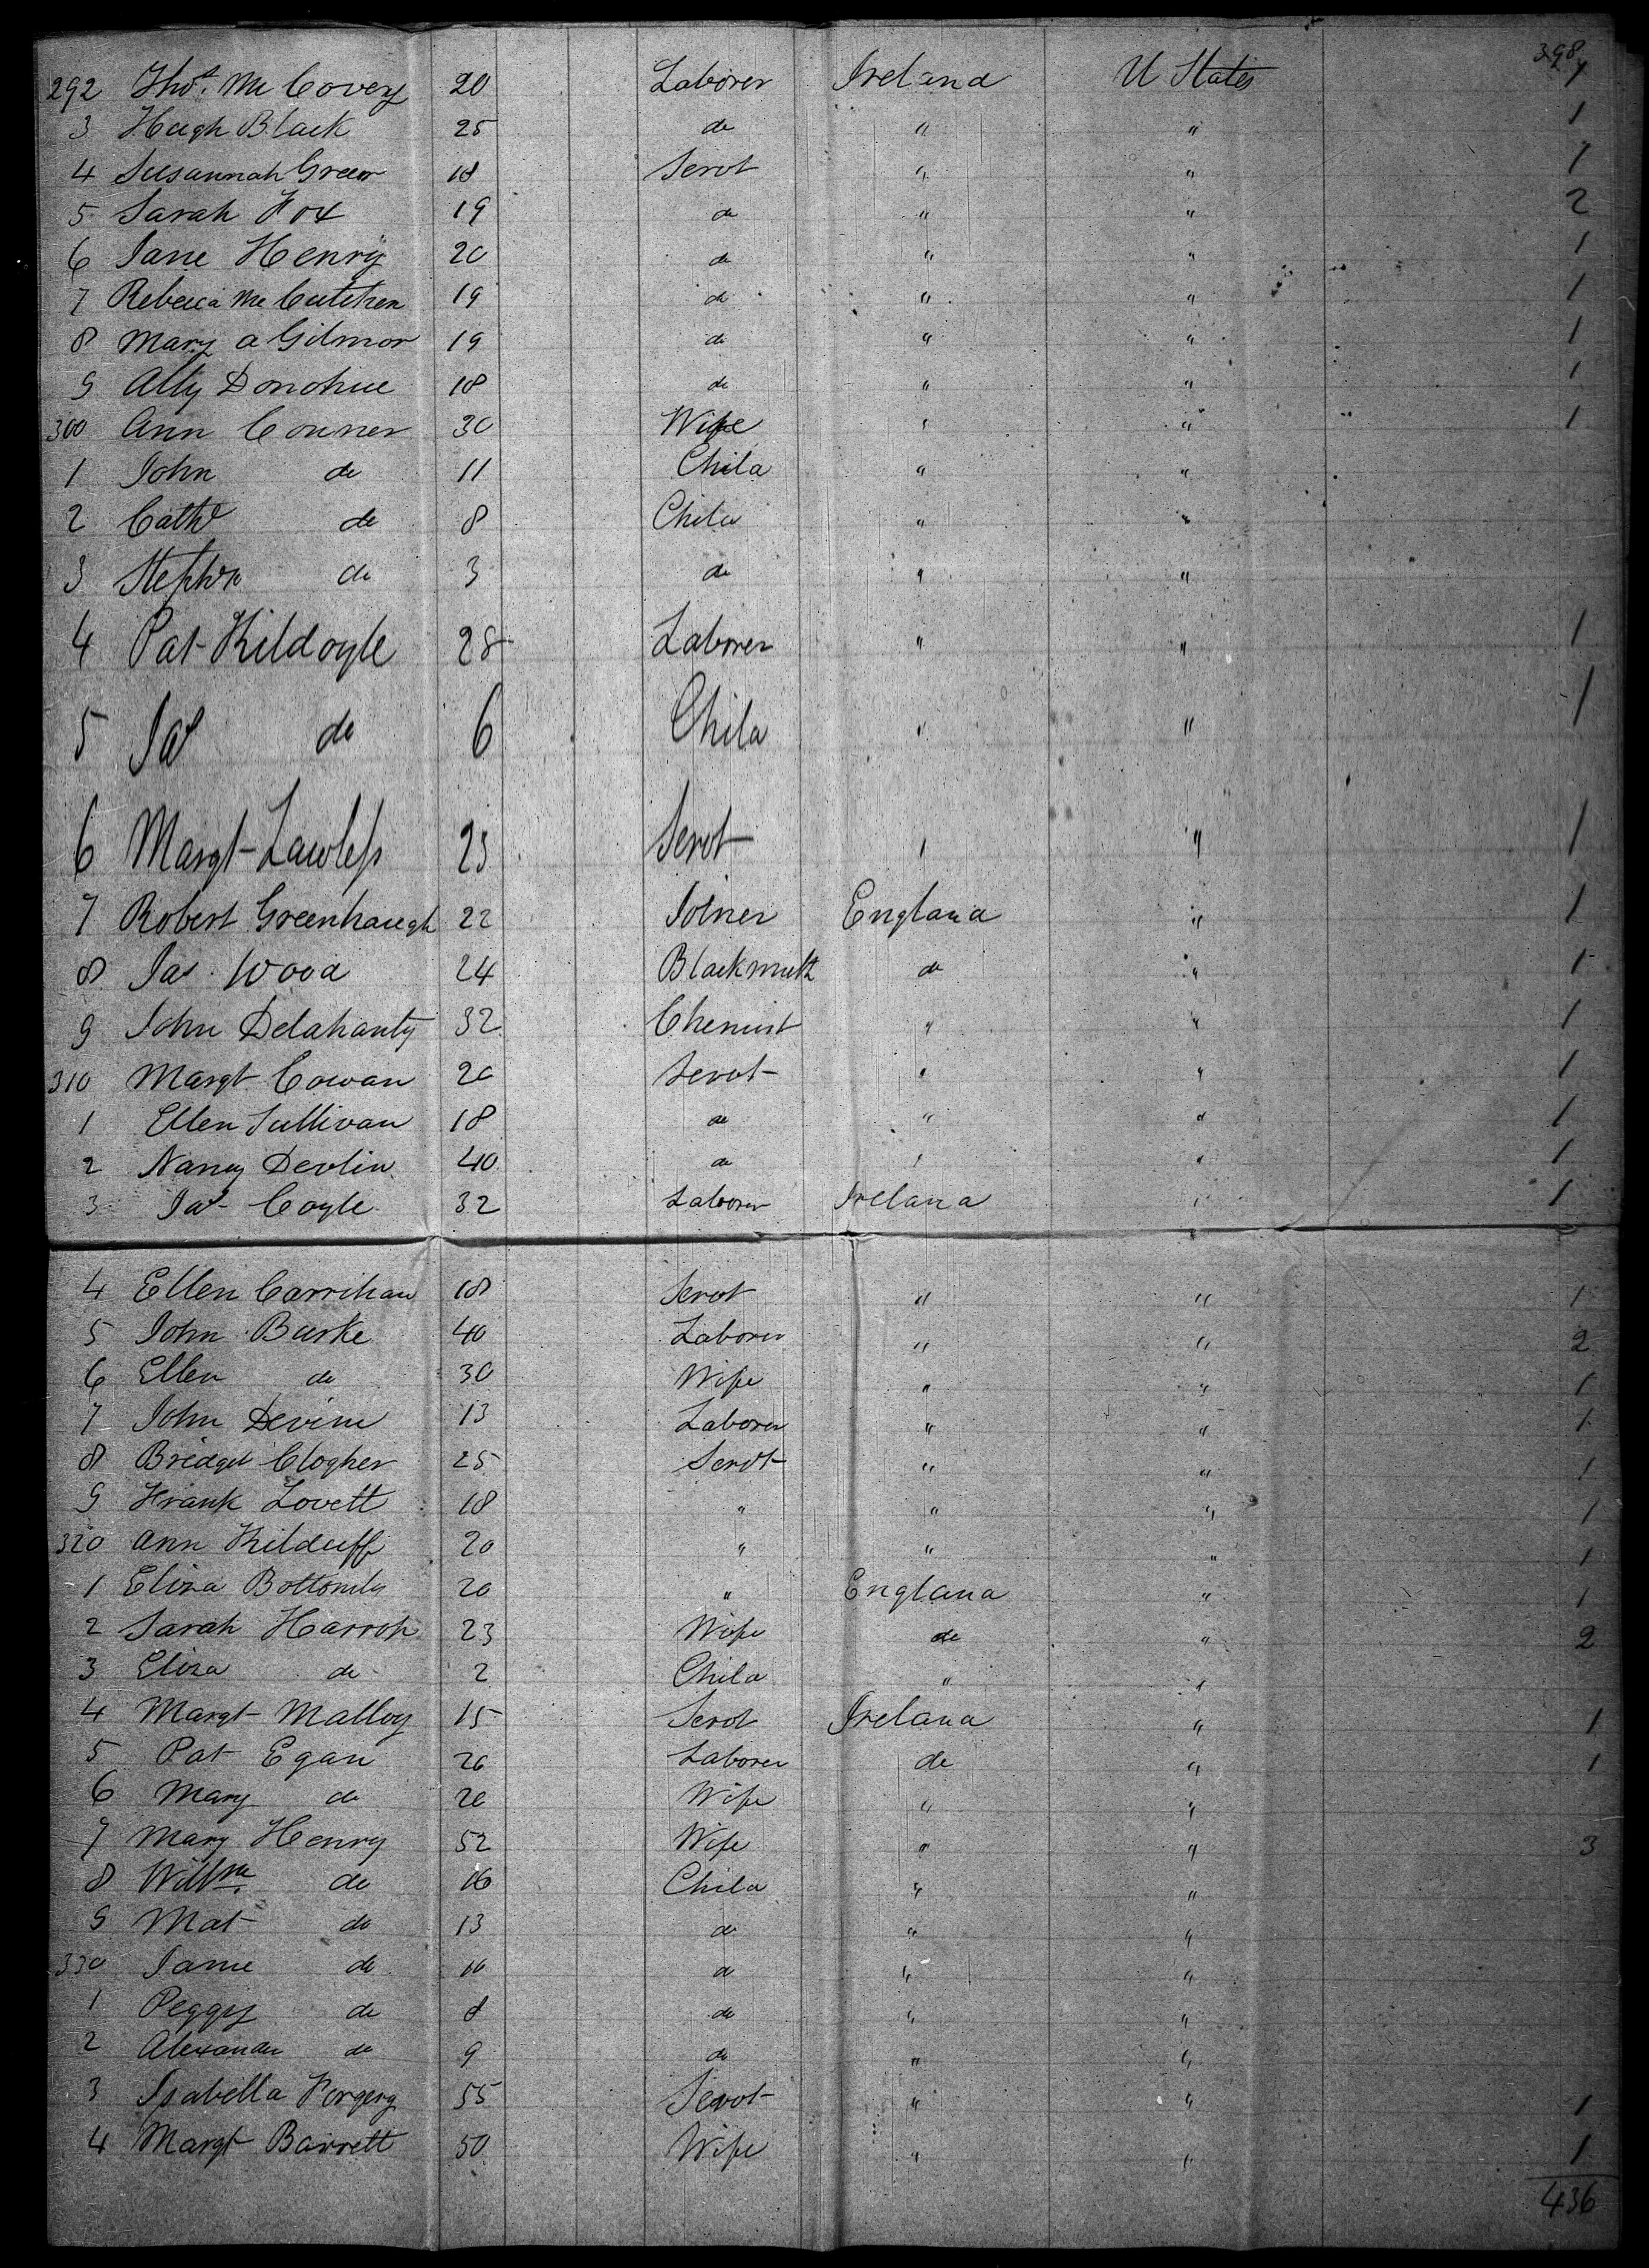 398
292 Thos. Mc Covery 20 Laborer Ireland U States 1
3 Hugh Black 25 do " " 1
4 Susannah Greer 18 Servt " " 1
5 Sarah Fox 19 do " " 2
6 Jane Henry 20 do " " 1
7 Rebecca Mc Cutchen 19 do " " 1
8 Mary A Gilmor 19 do " " 1
9 Ally Donohue 18 do " " 1
300 Ann Conner 30 Wife " " 1
1 John do 11 Child " "
2 Cathe do 8 Child " "
3 Stephn do 3 do " "
4 Pat Kildoyle 28 Laborer " " 1
5 Jas do 6 Child " " 1
6 Margt Lawless 23 Servt " " 1
7 Robert Greenhaugh 22 Joiner England " 1
8 Jas Wood 24 Blacksmith do " 1
9 John Delahanty 32 Chemist " " 1
310 Margt Cowan 20 Servt " " 1
1 Ellen Sullivan 18 do " " 1
2 Nancy Devlin 40 do " " 1
3 Jas Coyle 32 Laborer Ireland " 1
4 Ellen Carrihan 18 Servt " " 1
5 John Burke 40 Laborer " " 2
6 Ellen do 30 Wife " " 1
7 John Devine 13 Laborer " " 1
8 Bridget Clogher 25 Servt " " 1
9 Frank Lovett 18 " " " 1
320 Ann Kilduff 20 " " " 1
1 Eliza Bottomly 20 " England " 1
2 Sarah Harrop 23 Wife do " 2
3 Eliza do 2 Child " "
4 Margt Malloy 15 Servt Ireland " 1
5 Pat Egan 26 Laborer do " 1
6 Mary do 20 Wife " "
7 Mary Henry 52 Wife " " 3
8 Willm do 16 Child " "
9 Mat do 13 do " "
330 Jane do 10 do " "
1 Peggy do 8 do " "
2 Alexander do 9 do " "
3 Isabella Forgery 55 Servt " " 1
4 Margt Barrett 50 Wife " " 1
436